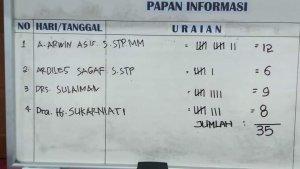 PAPAN INFORMASI
NO HARI/TANGGAL URAIAN
1 A. ARWIN ASIS. S.STP. MM = 12
2 ARDILES SAGAF S.STP = 6
3 DRS. SULAIMAN = 9
4 Dra. Hj. SUKARNIATI = 8
JUMLAH : 35